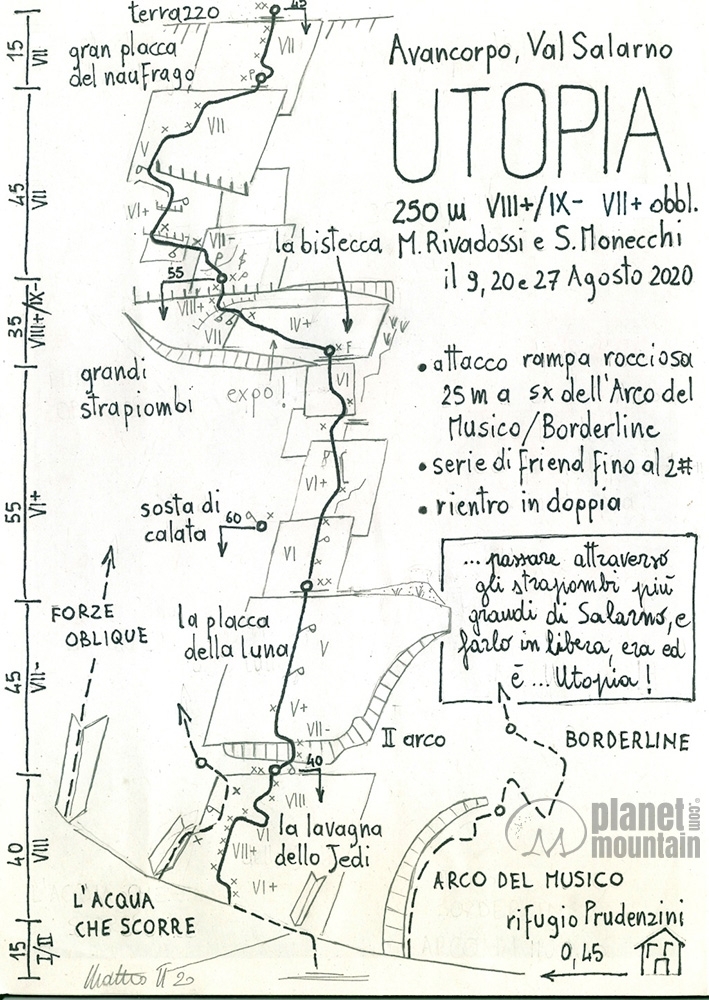 terrazzo
45
gran placca
del naufrago
Avancorpo, Val Salarno
UTOPIA
250 m VIII+/IX- VII+ obbl.
M. Rivadossi e S. Monecchi
il 9, 20 e 27 Agosto 2020
15
VII
VII
P
45
VII
VII
V
VI+
VII-
la bistecca
55
35
VIII+/IX-
VIII+
VII
IV+
F
grandi
strapiombi
expo!
VI
• attacco rampa rocciosa
25m a sx dell'Arco del
Musico/Borderline
• serie di friend fino al 2#
• rientro in doppia
55
VI+
VI+
sosta di
calata
60
VI
...passare attraverso
gli strapiombi più
grandi di Salarno, e
farlo in libera, era ed
è ... Utopia!
FORZE
OBLIQUE
la placca
della luna
45
VII-
V
V+
VII-
II arco
BORDERLINE
40
40
VIII
VIII
VI
VII+
VI+
la lavagna
dello Jedi
planet
mountain
.com
L'ACQUA
CHE SCORRE
ARCO DEL MUSICO
rifugio Prudenzini
0,45
15
I/II